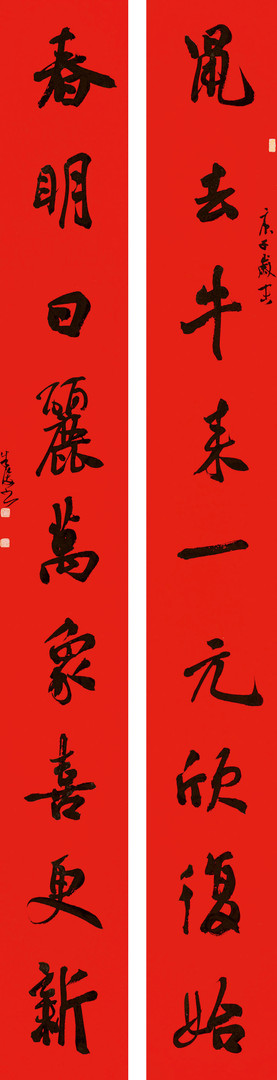 鼠去牛来一元欣復始
庚子歲末
春明日麗萬象喜更新